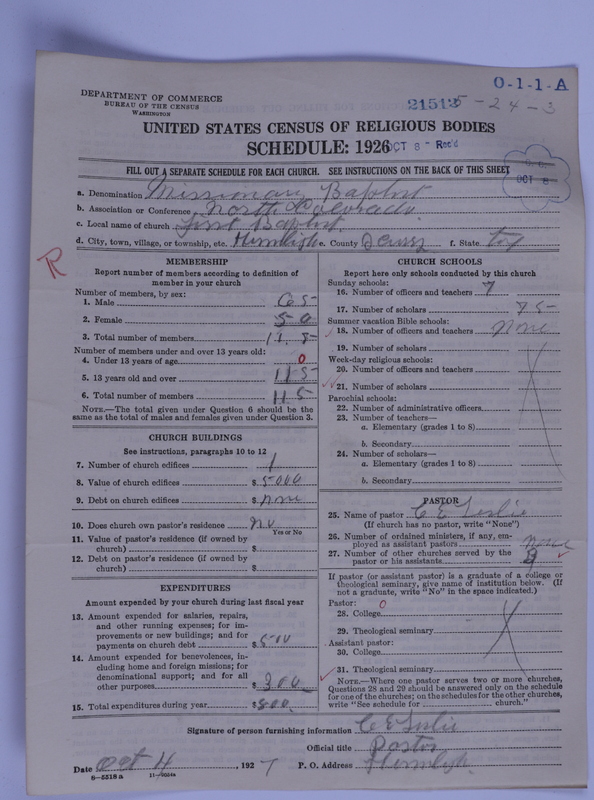 O-1-1-A
DEPARTMENT OF COMMERCE
BUREAU OF THE CENSUS
WASHINGTON
21512 5-24-3
UNITED STATES CENSUS OF RELIGIOUS BODIES
SCHEDULE: 1926 OCT 8 - Rec'd
FILL OUT A SEPARATE SCHEDULE FOR EACH CHURCH. SEE INSTRUCTIONS ON THE BACK OF THIS SHEET
OCT 8
a. Denomination Missionary Baptist
b. Association or Conference North Colorado
c. Local name of church First Baptist
d. City, town, village, or township, etc. Hermleigh e. County Scurry f. State Tex
R
MEMBERSHIP
Report number of members according to definition of
member in your church
Number of members, by sex:
1. Male 65
2. Female 50
3. Total number of members 115
Number of members under and over 13 years old:
4. Under 13 years of age 0
5. 13 years old and over 115
6. Total number of members 115
NOTE.—The total given under Question 6 should be the
same as the total of males and females given under Question 3.
CHURCH BUILDINGS
See instructions, paragraphs 10 to 12
7. Number of church edifices 1
8. Value of church edifices $ 5000
9. Debt on church edifices $ none
10. Does church own pastor's residence no
Yes or No
11. Value of pastor's residence (if owned by
church) $
12. Debt on pastor's residence (if owned by
church) $
EXPENDITURES
Amount expended by your church during last fiscal year
13. Amount expended for salaries, repairs,
and other running expenses; for im-
provements or new buildings; and for
payments on church debt $ 500
14. Amount expended for benevolences, in-
cluding home and foreign missions; for
denominational support; and for all
other purposes $ 300
15. Total expenditures during year $ 800
CHURCH SCHOOLS
Report here only schools conducted by this church
Sunday schools:
16. Number of officers and teachers 7
17. Number of scholars 75
Summer vacation Bible schools:
18. Number of officers and teachers None
19. Number of scholars
Week-day religious schools:
20. Number of officers and teachers
21. Number of scholars
Parochial schools:
22. Number of administrative officers
23. Number of teachers—
a. Elementary (grades 1 to 8)
b. Secondary
24. Number of scholars—
a. Elementary (grades 1 to 8)
b. Secondary
PASTOR
25. Name of pastor C E Leslie
(If church has no pastor, write "None")
26. Number of ordained ministers, if any, em-
ployed as assistant pastors None
27. Number of other churches served by the
pastor or his assistants
If pastor (or assistant pastor) is a graduate of a college or
theological seminary, give name of institution below. (If
not a graduate, write "No" in the space indicated.)
Pastor: 0
28. College
29. Theological seminary
Assistant pastor:
30. College
31. Theological seminary
NOTE.—Where one pastor serves two or more churches,
Questions 28 and 29 should be answered only on the schedule
for one of the churches; on the schedules for the other churches,
write "See schedule for church."
Signature of person furnishing information C E Leslie
Official title Pastor
Date Oct 4, 1927 P. O. Address Hermleigh
8-5518 a 11-9024a